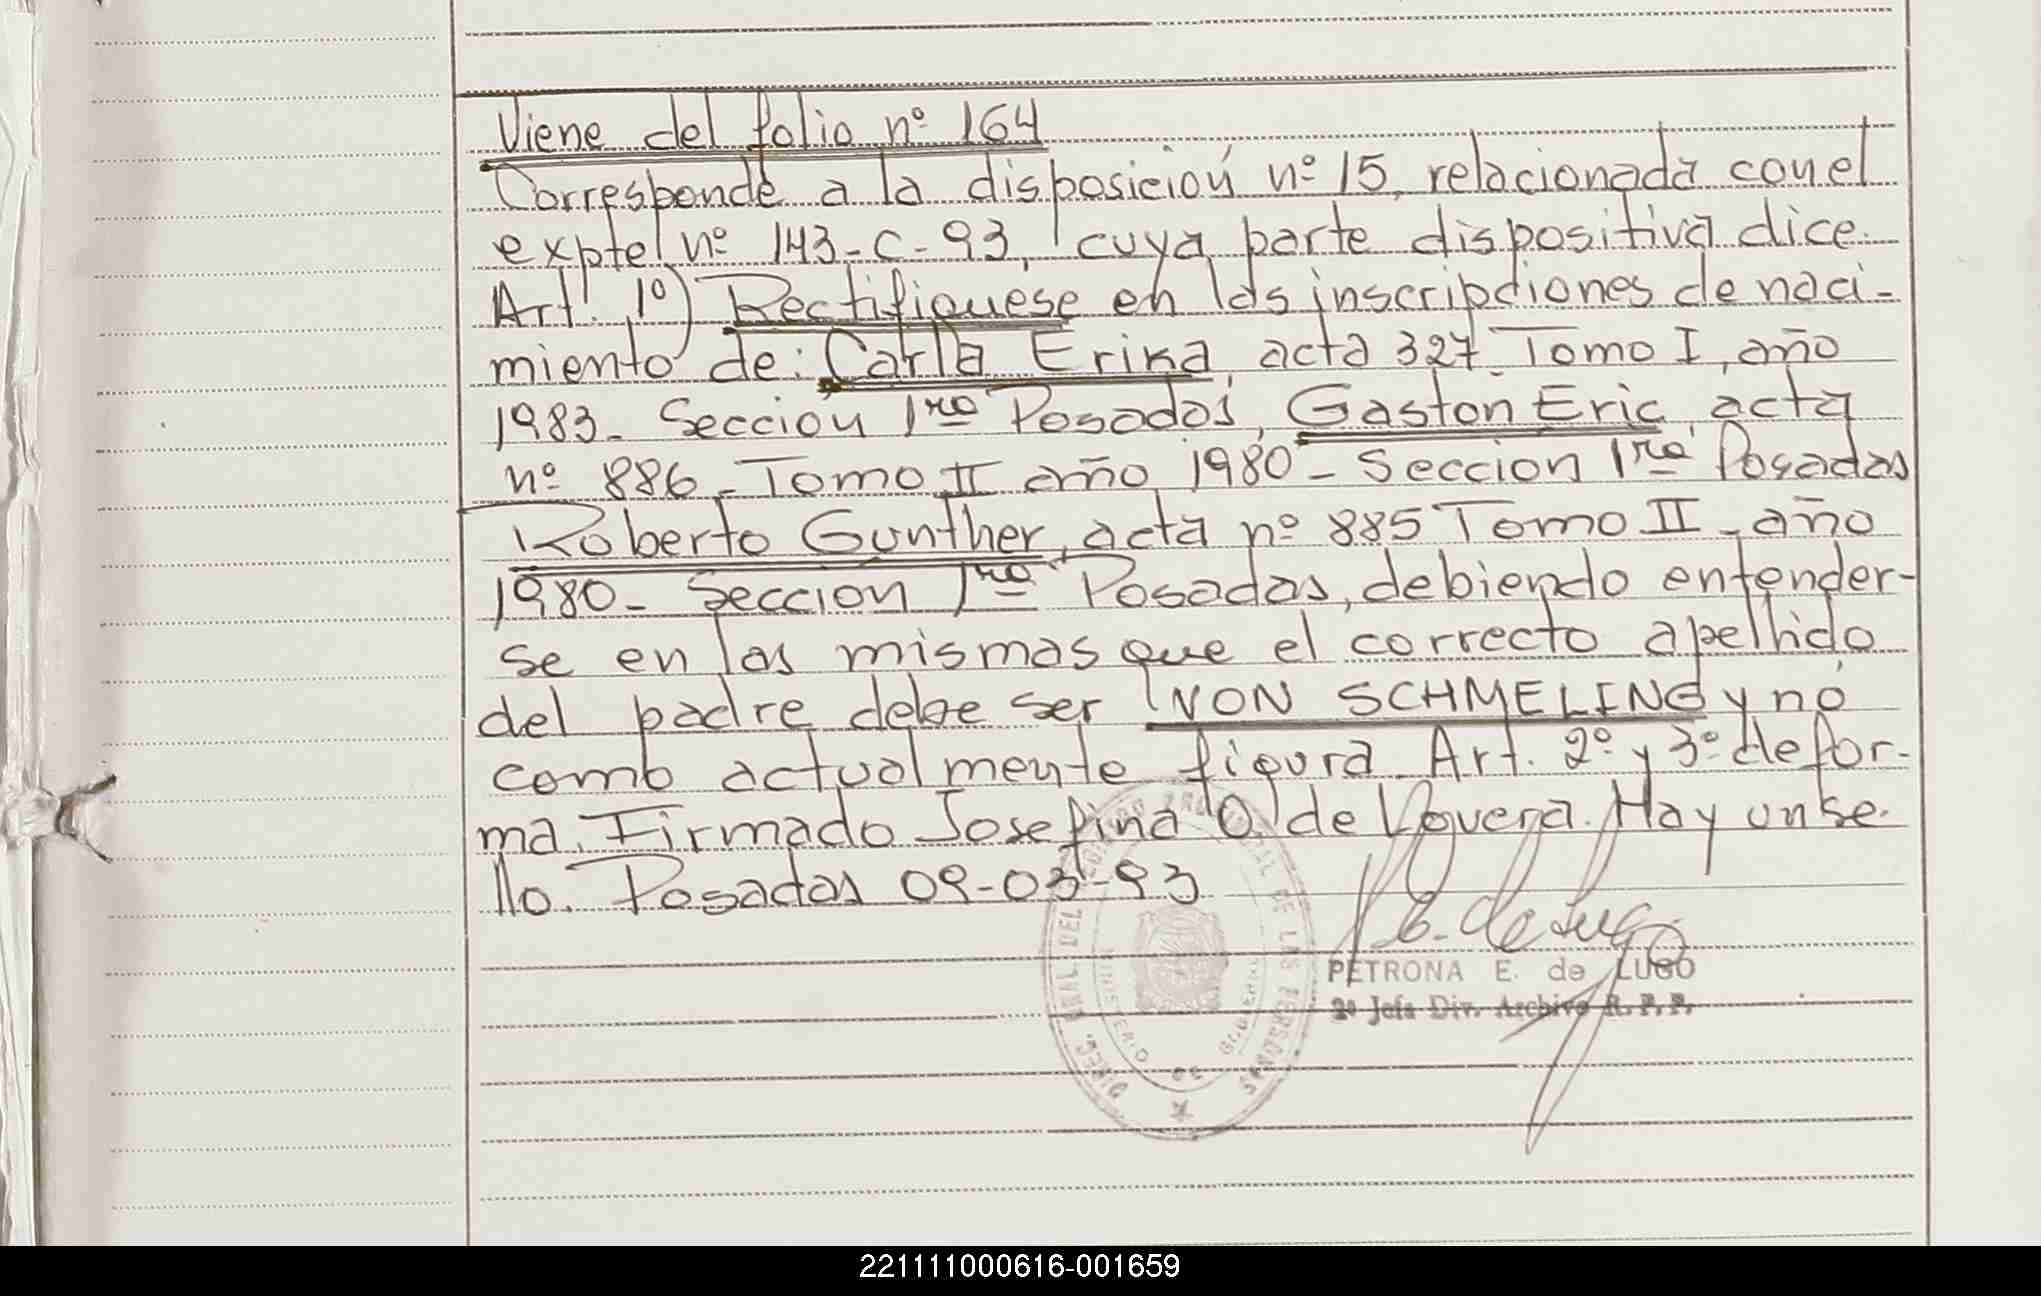 Viene del folio nº 164
Corresponde a la disposición nº 15, relacionada con el
expte nº 143-C-93, cuya parte dispositiva dice.
Art. 1º) Rectifiquese en las inscripciones de naci-
miento de: Carla Erika, acta 327 Tomo I, año
1983- Sección 1ra Posadas, Gaston Eric, acta
nº 886- Tomo II año 1980- Seccion 1ra Posadas
Roberto Gunther, acta nº 885 Tomo II - año
1980- Seccion 1ra Posadas, debiendo entender-
se en las mismas que el correcto apellido
del padre debe ser VON SCHMELING y no
como actualmente figura. Art. 2º y 3º de for-
ma. Firmado Josefina O. de Hay un se-
llo. Posadas 09-03-93
PETRONA E. de LUGO
2º Jefa Div. Archivo R.P.P.
DIREC. GRAL. DEL REGISTRO PROVINCIAL DE LAS PERSONAS
MINISTERIO DE GOBIERNO
221111000616-001659